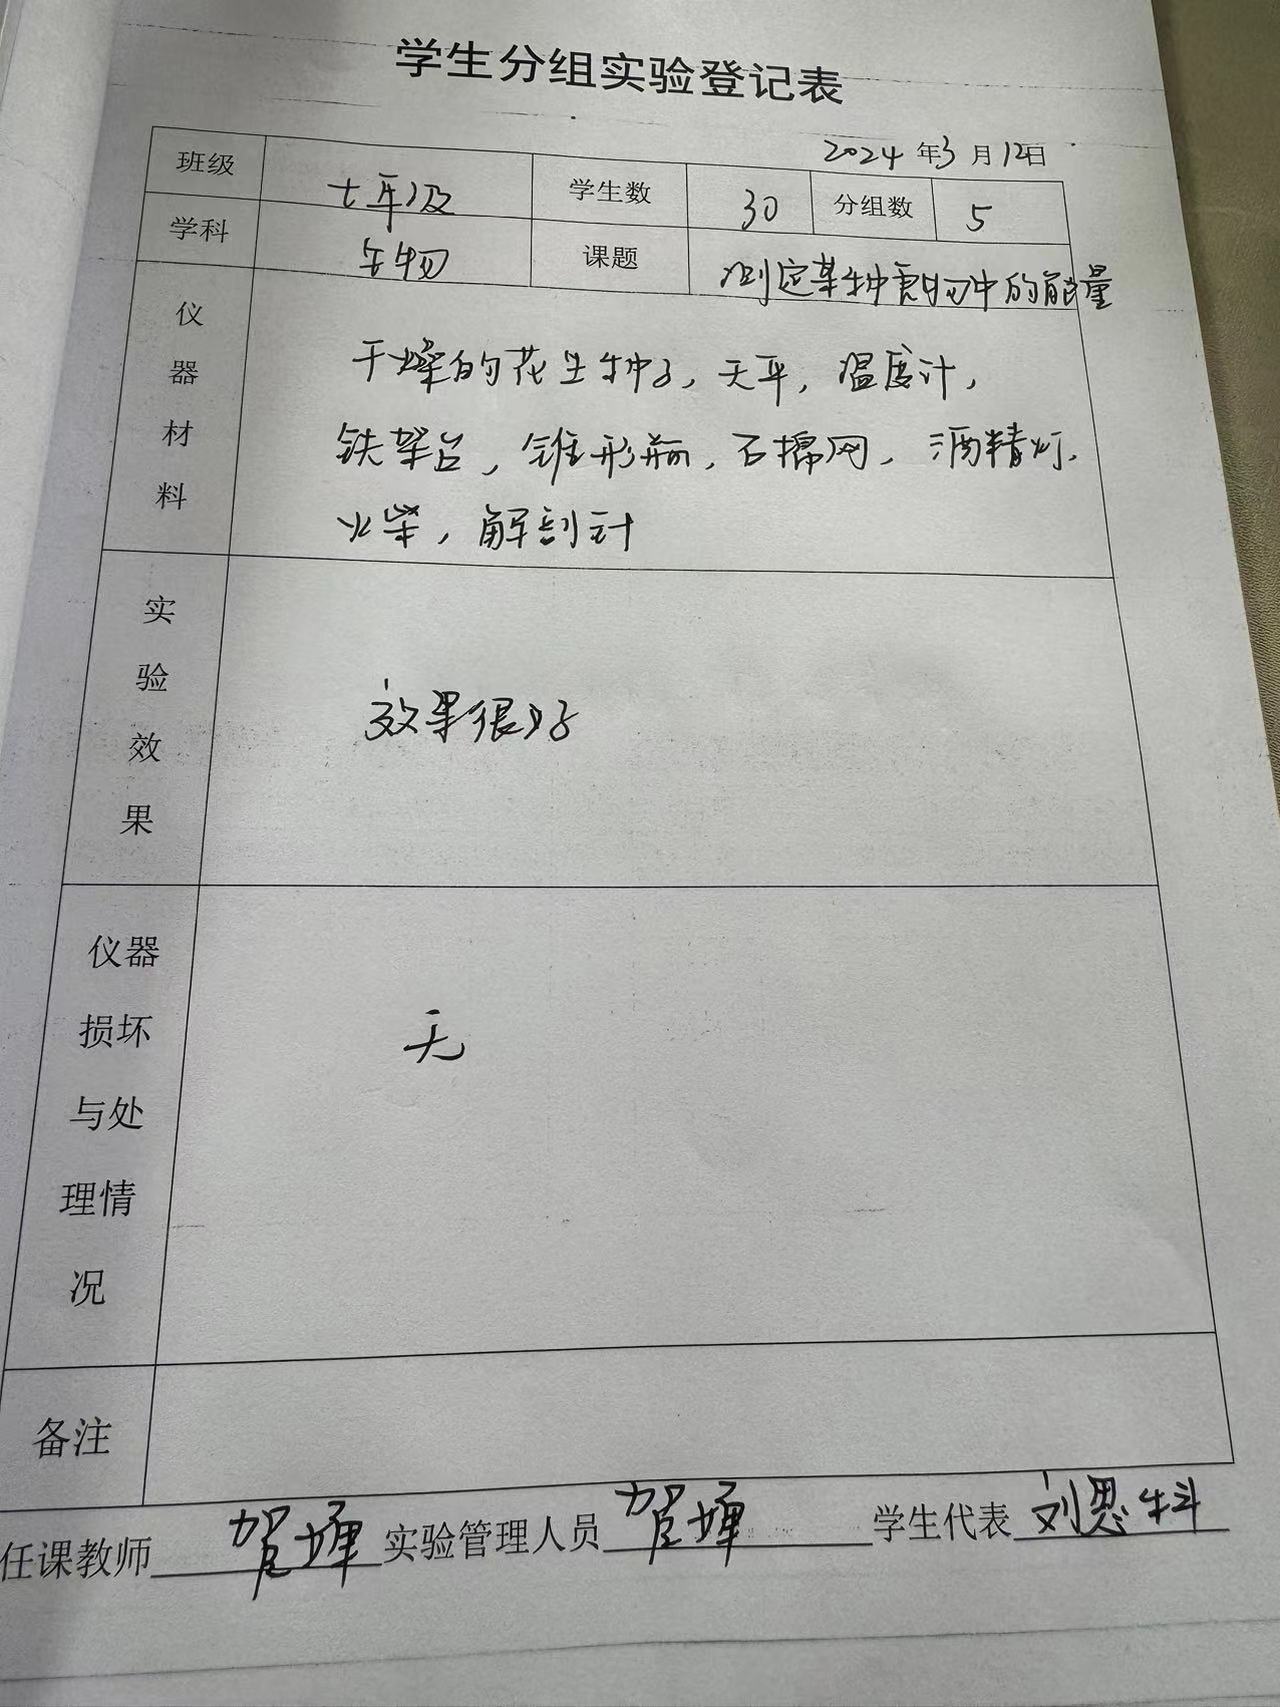 学生分组实验登记表
2024年3月12日
班级 七年级 学生数 30 分组数 5
学科 生物 课题 测定某种食物中的能量
仪器材料
干燥的花生种子，天平，温度计，
铁架台，锥形瓶，石棉网，酒精灯，
火柴，解剖针
实验效果
效果很好
仪器损坏与处理情况
无
备注
任课教师 贺 实验管理人员 贺 学生代表 刘思